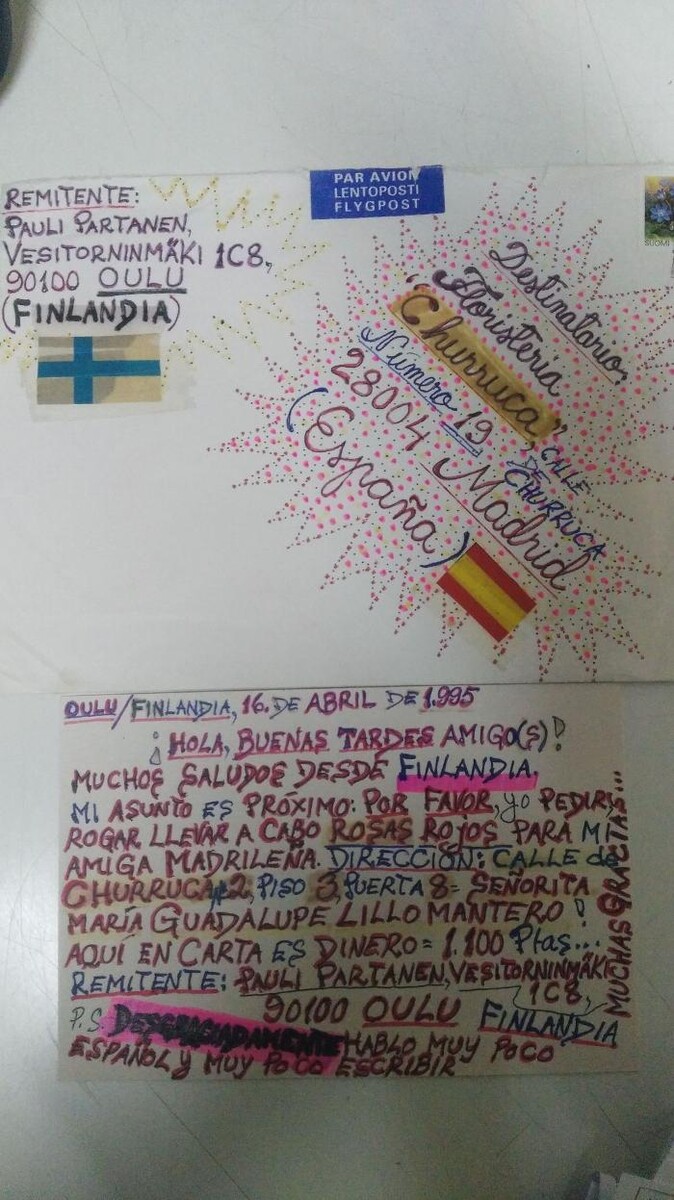 REMITENTE:
PAULI PARTANEN,
VESITORNINMÄKI 1C8,
90100 OULU
(FINLANDIA)
PAR AVION
LENTOPOSTI
FLYGPOST
SUOMI
Destinatario,
Floristería
"Churruca",
Número 19,
CALLE
DE
CHURRUCA
28004 Madrid
(España)
OULU/FINLANDIA, 16. DE ABRIL DE 1.995
¡HOLA, BUENAS TARDES AMIGO(S)!
MUCHOS SALUDOS DESDE FINLANDIA.
MI ASUNTO ES PRÓXIMO: POR FAVOR, yo PEDIR,
ROGAR LLEVAR A CABO ROSAS ROJOS PARA MI
AMIGA MADRILEÑA. DIRECCIÓN: CALLE de
CHURRUCA, 2, PISO 3, PUERTA 8= SEÑORITA
MARÍA GUADALUPE LILLO MANTERO!
AQUÍ EN CARTA ES DINERO= 1.100 Ptas...
REMITENTE: PAULI PARTANEN, VESITORNINMÄKI
1C8,
90100 OULU FINLANDIA
P.S. DESGRACIADAMENTE HABLO MUY POCO
ESPAÑOL Y MUY POCO ESCRIBIR
MUCHAS GRACIAS...